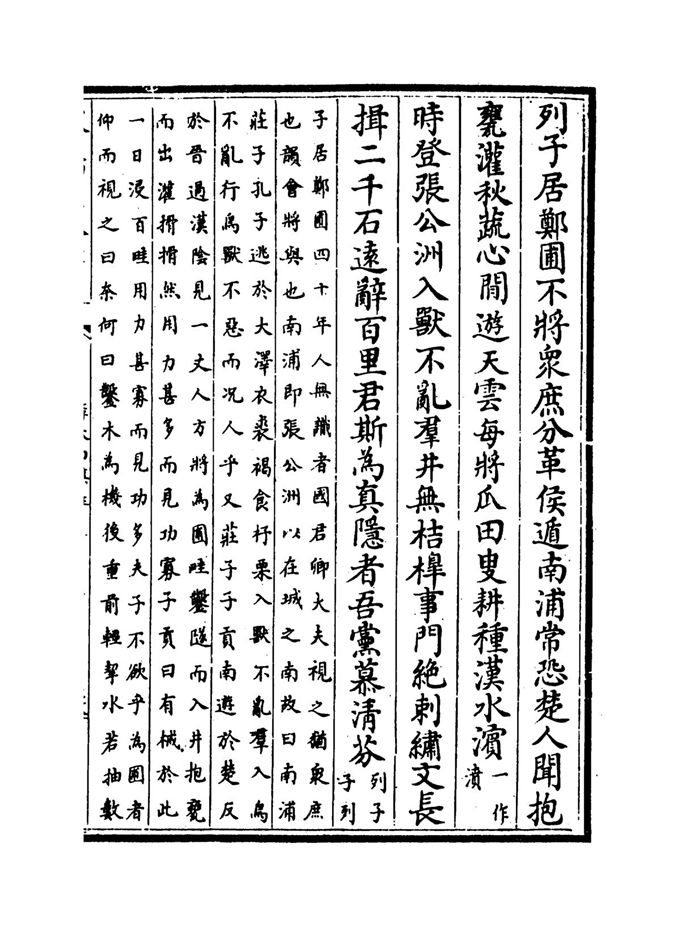 列子居鄭圃不將衆庶分革侯遁南浦常恐楚人聞抱
甕灌秋蔬心閒遊天雲每將瓜田叟耕種漢水濱一作濆
時登張公洲入獸不亂羣井無桔橰事門絶刺繡文長
揖二千石遠辭百里君斯為真隱者吾黨慕清芬列子子列
子居鄭圃四十年人無識者國君卿大夫視之猶衆庶
也韻會將與也南浦即張公洲以在城之南故曰南浦
莊子孔子逃於大澤衣裘褐食杼栗入獸不亂羣入鳥
不亂行鳥獸不惡而况人乎又莊子子貢南遊於楚反
於晉過漢陰見一丈人方將為圃畦鑿隧而入井抱甕
而出灌搰搰然用力甚多而見功寡子貢曰有械於此
一日浸百畦用力甚寡而見功多夫子不欲乎為圃者
仰而視之曰奈何曰鑿木為機後重前輕挈水若抽數